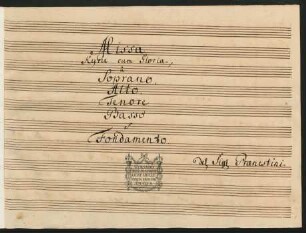 Missa
Kyrie cum Gloria.
à
Soprano.
Alto.
Tenore
Basso
et
Fondamento.
Del Sig. Pranestini